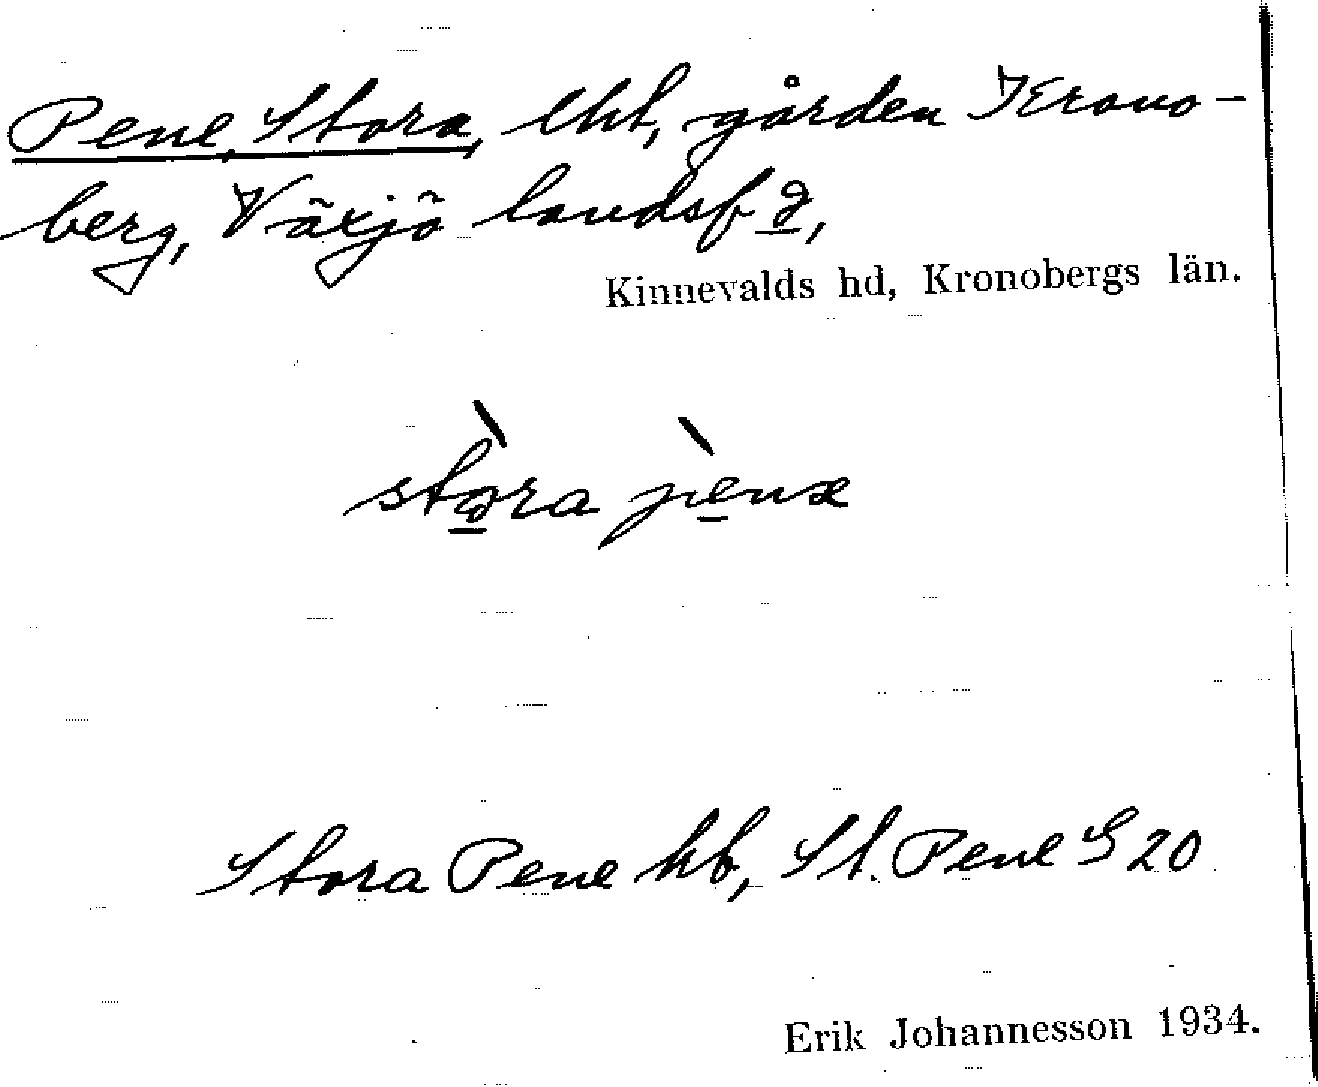 Pene, Stora, lht, gården Krono-
berg, Växjö landsf d,
Kinnevalds hd, Kronobergs län.
stòra pènæ
Stora Pene kb, St. Pene G 20
Erik Johannesson 1934.